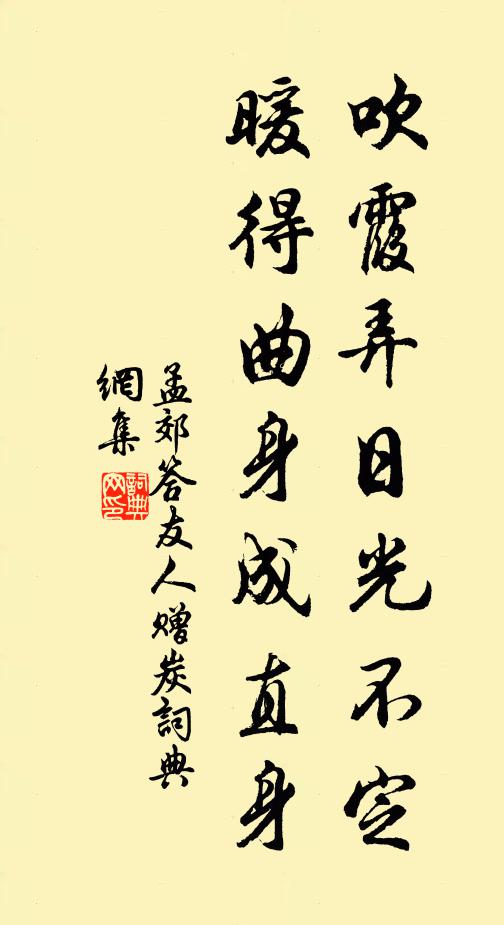 吹霞弄日光不定
暖得曲身成直身
孟郊答友人赠炭詞典
網集
詞典
网印